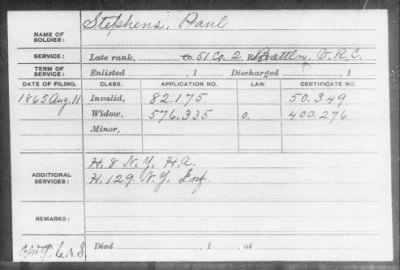 NAME OF SOLDIER: Stephens, Paul
SERVICE: Late rank, Co. 51 Co. 2 Battln, V.R.C.
TERM OF SERVICE: Enlisted , 1 Discharged , 1
DATE OF FILING. CLASS. APPLICATION NO. LAW. CERTIFICATE NO.
1865 Aug. 11 Invalid, 82.175 50.349
Widow, 576.335 O. 400.276
Minor,
ADDITIONAL SERVICES: H. 8 N.Y. H.A.
H. 129. N.Y. Inf.
REMARKS:
Died , 1 , at